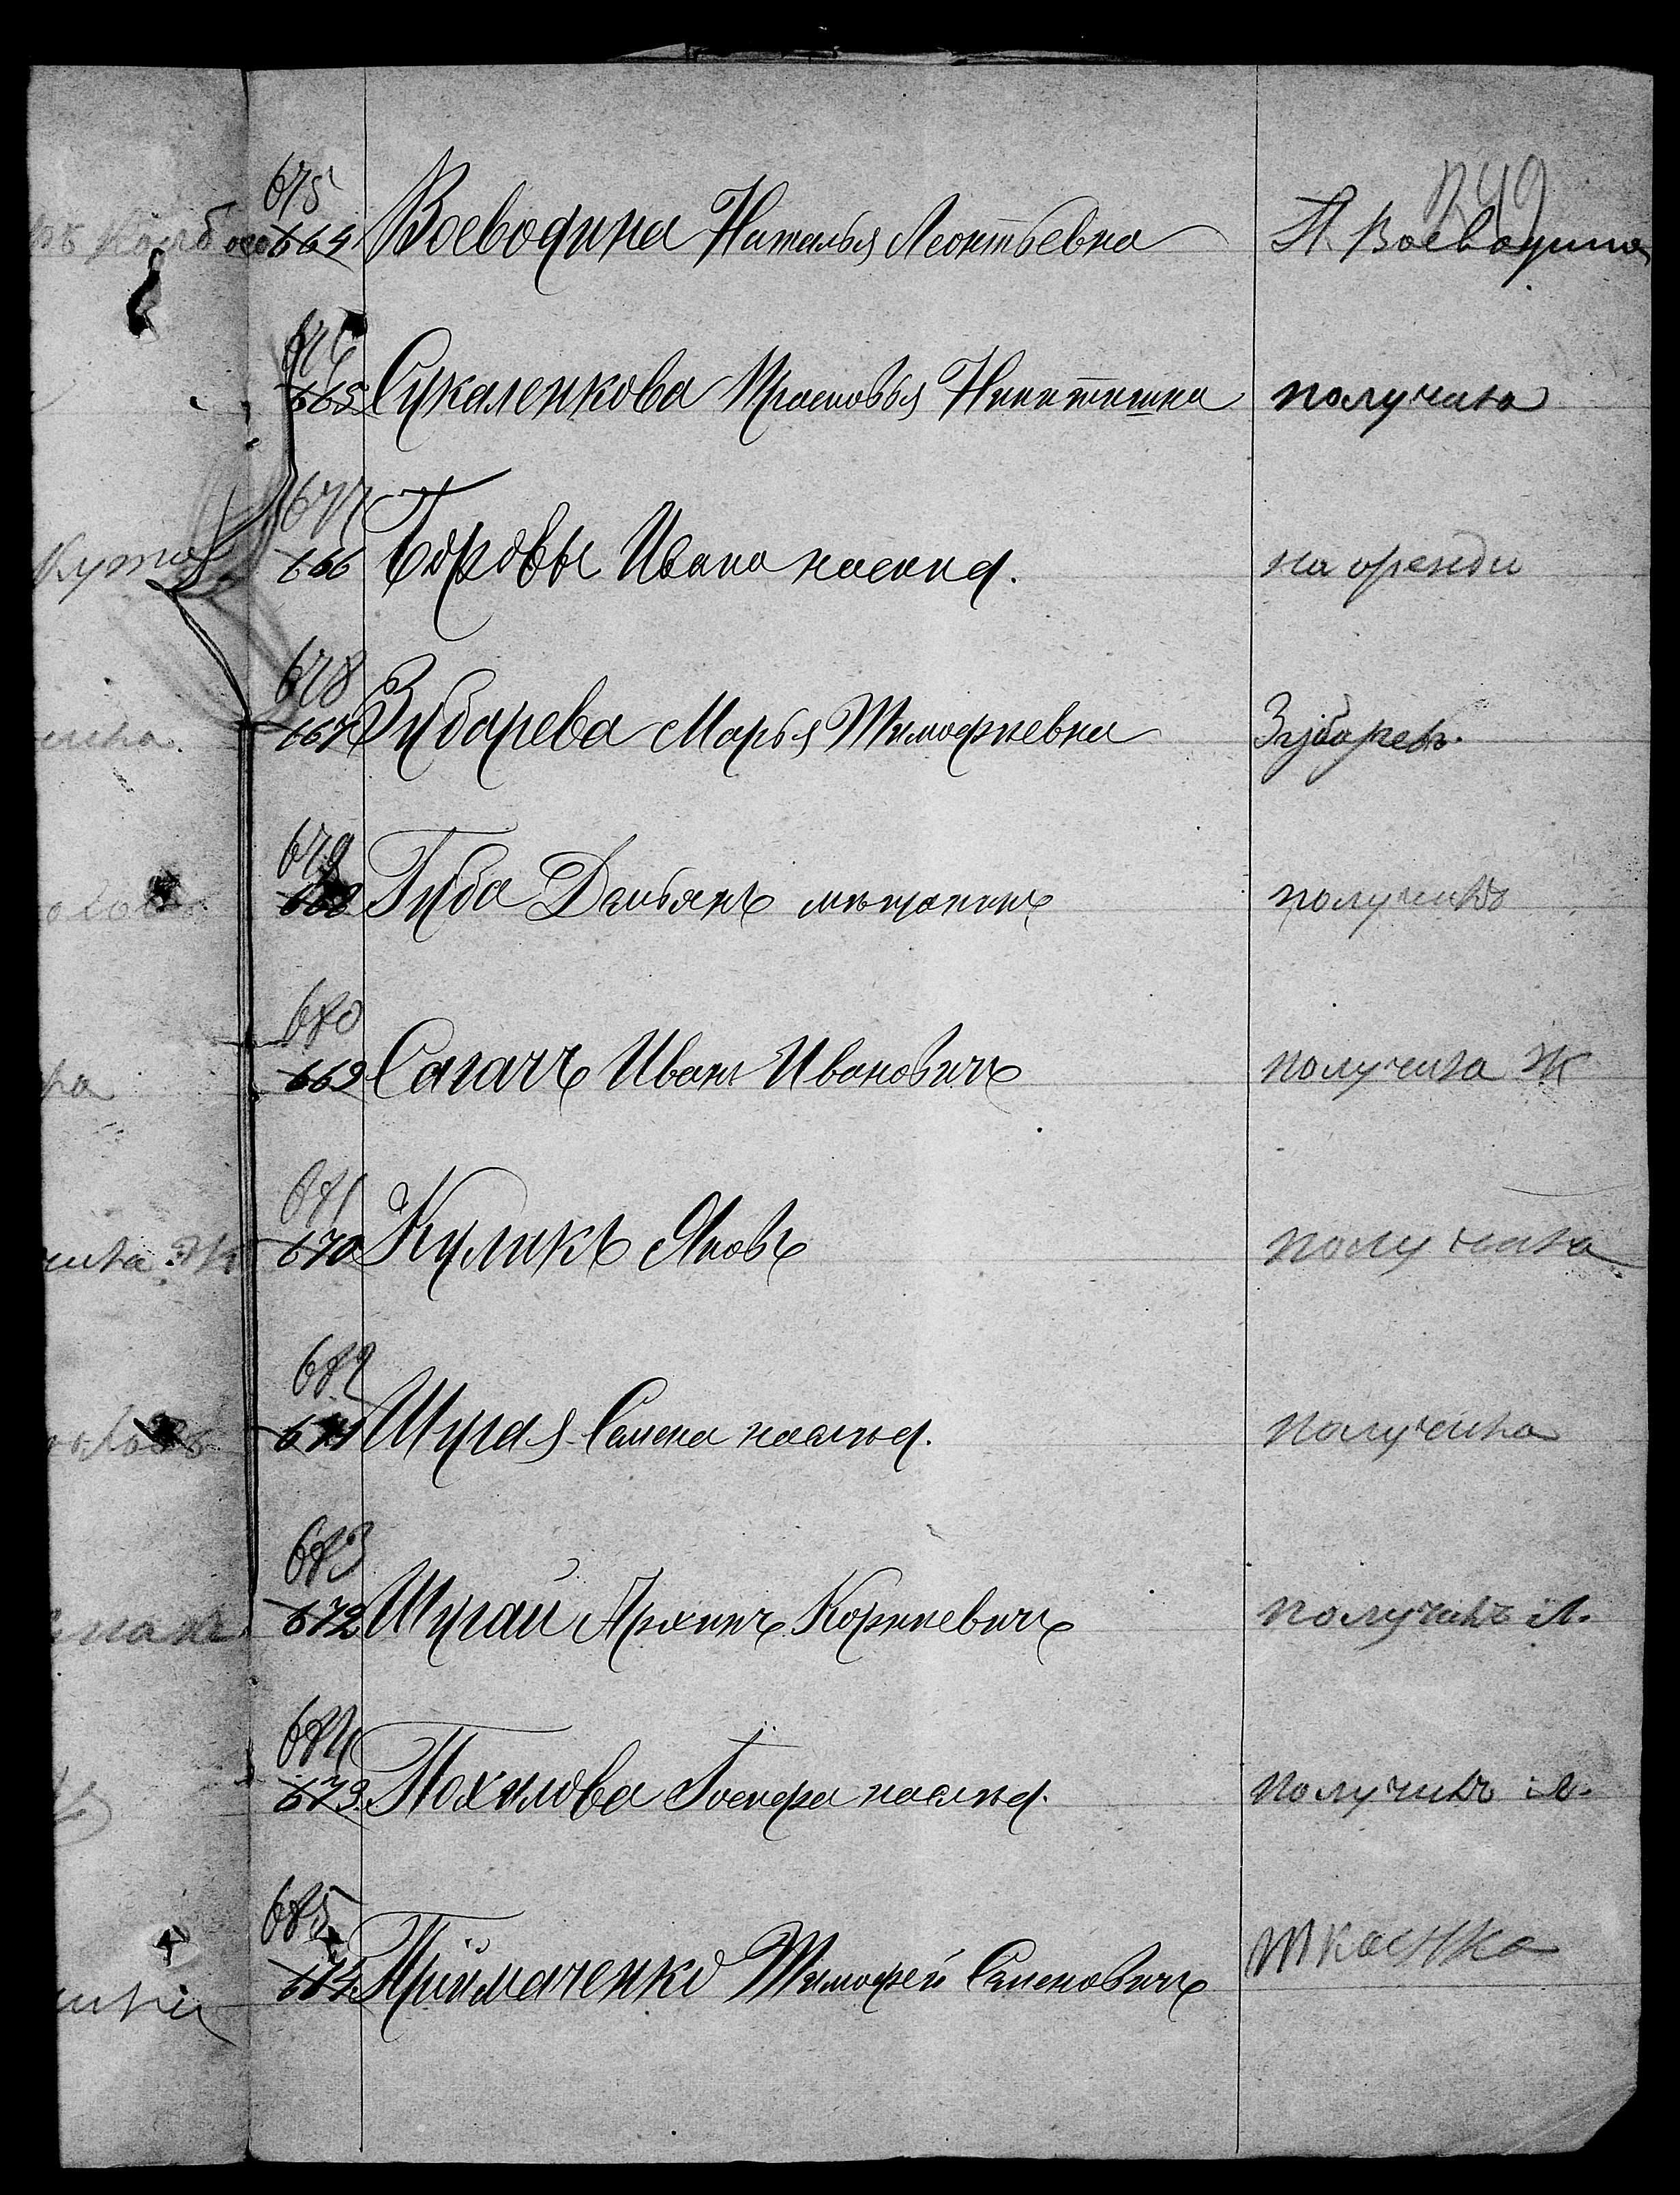 249
675
664 Воеводина Наталья Леонтьевна Н. Воеводина
676
665 Сукаленкова Прасковья Никитишна получила
677
666 Боровы Ивана наслѣд. на оренди
678
667 Зубарева Марья Тимофѣевна Зубаревъ.
679
668 Губа Демьянъ мѣщанинъ получилъ
680
669 Сагачъ Иванъ Ивановичъ получила Ж
681
670 Куликъ Яковъ получила
682
671 Шугая Семена наслѣд. получила
683
672 Шугай Архипъ Корнѣевичъ получилъ Л.
684
673 Похилова наслѣд. получилъ Л.
685
674 Пріймаченко Тимофей Семеновичъ